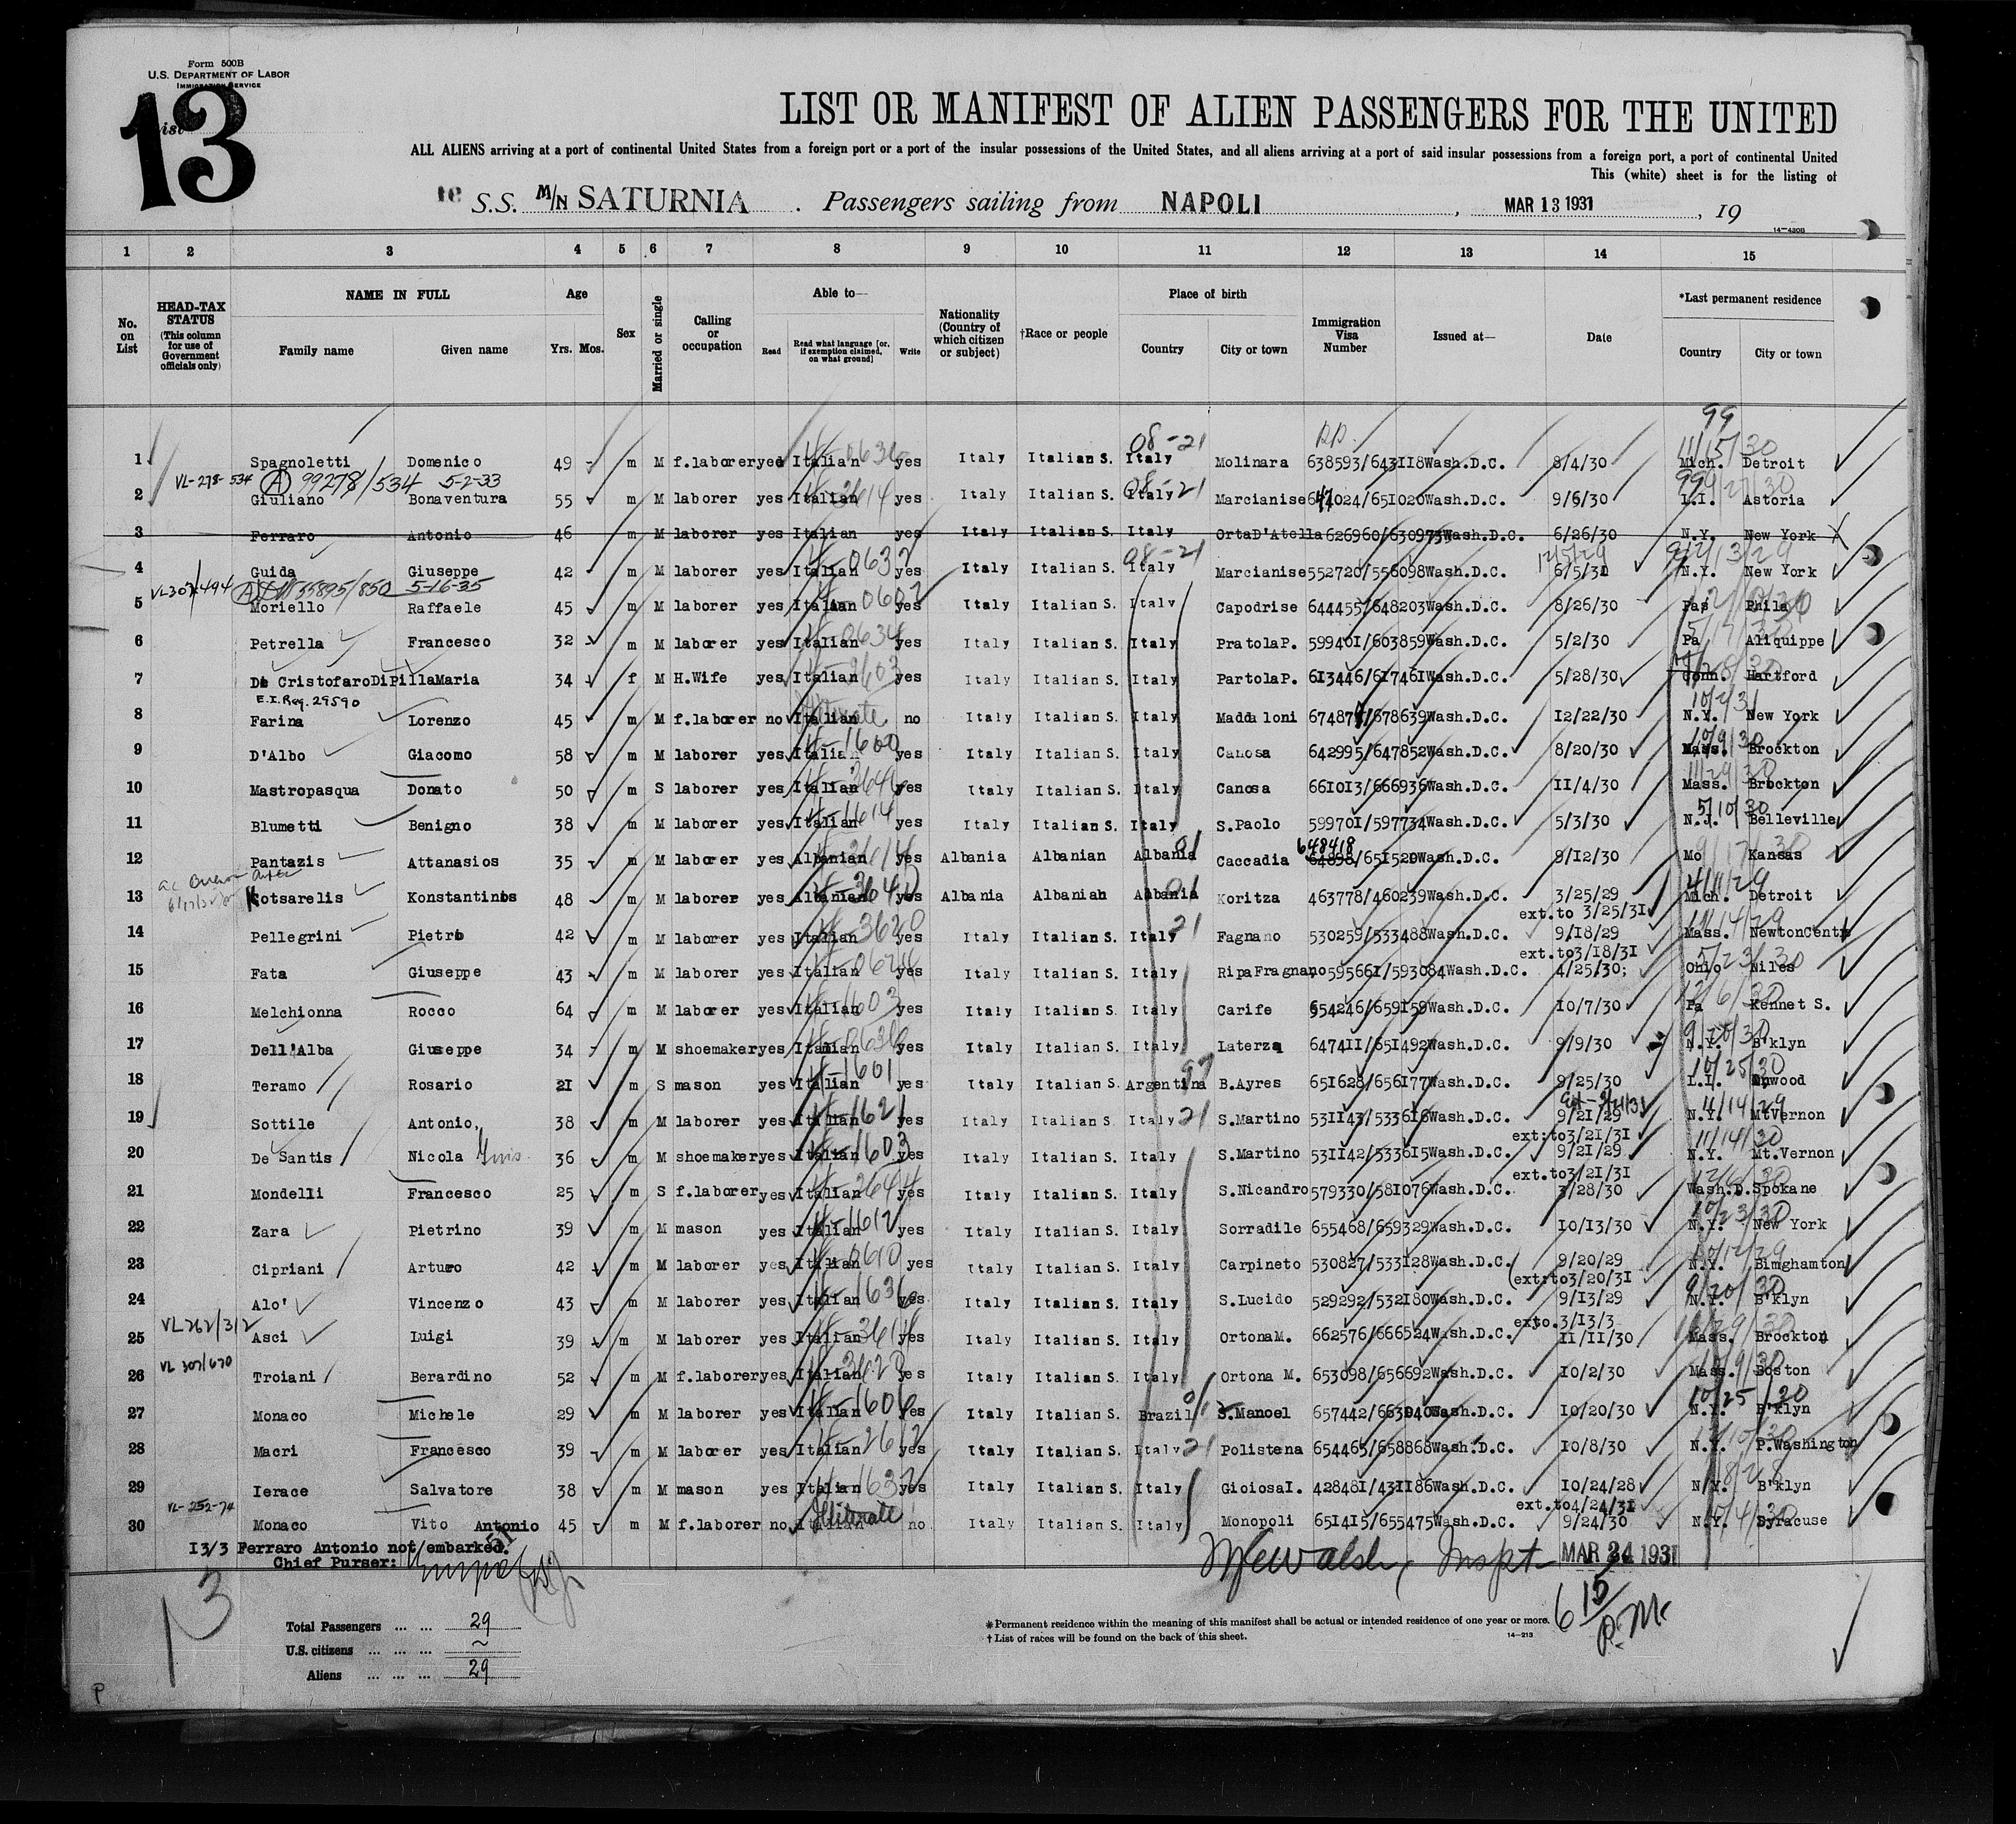 Form 500B
U.S. DEPARTMENT OF LABOR
IMMIGRATION SERVICE
13
LIST OR MANIFEST OF ALIEN PASSENGERS FOR THE UNITED
ALL ALIENS arriving at a port of continental United States from a foreign port or a port of the insular possessions of the United States, and all aliens arriving at a port of said insular possessions from a foreign port, a port of continental United
This (white) sheet is for the listing of
S.S. M/N SATURNIA. Passengers sailing from NAPOLI, MAR 13 1931, 19
14-430B
1 2 3 4 5 6 7 8 9 10 11 12 13 14 15
No. on List HEAD-TAX STATUS (This column for use of Government officials only) NAME IN FULL Family name Given name Age Yrs. Mos. Sex Married or single Calling or occupation Able to— Read Read what language [or, if exemption claimed, on what ground] Write Nationality (Country of which citizen or subject) †Race or people Place of birth Country City or town Immigration Visa Number Issued at— Date *Last permanent residence Country City or town
99
08-21 11/15/30
1 Spagnoletti Domenico 49 m M f.laborer yes Italian yes Italy Italian S. Italy Molinara 638593/643118 Wash.D.C. 8/4/30 Mich. Detroit
VL-278-534 (A) 99278/534 5-2-33
2 Giuliano Bonaventura 55 m M laborer yes Italian yes Italy Italian S. Italy Marcianise 647024/651020 Wash.D.C. 9/6/30 L.I. Astoria
3 Ferraro Antonio 46 m M laborer yes Italian yes Italy Italian S. Italy Orta D'Atella 626960/630973 Wash.D.C. 6/26/30 N.Y. New York
4 Guida Giuseppe 42 m M laborer yes Italian yes Italy Italian S. Italy Marcianise 552720/556098 Wash.D.C. 6/5/31 N.Y. New York
VL307/494 55895/850 5-16-35
5 Moriello Raffaele 45 m M laborer yes Italian yes Italy Italian S. Italy Capodrise 644455/648203 Wash.D.C. 8/26/30 Pas Phila
6 Petrella Francesco 32 m M laborer yes Italian yes Italy Italian S. Italy Pratola P. 599401/603859 Wash.D.C. 5/2/30 Pa Aliquippe
7 De Cristofaro DiPilla Maria 34 f M H.Wife yes Italian yes Italy Italian S. Italy Partola P. 613446/617461 Wash.D.C. 5/28/30 Conn. Hartford
E.I. Req. 29590
8 Farina Lorenzo 45 m M f.laborer no Italian no Italy Italian S. Italy Maddaloni 67487/678639 Wash.D.C. 12/22/30 N.Y. New York
9 D'Albo Giacomo 58 m M laborer yes Italian yes Italy Italian S. Italy Canosa 642995/647852 Wash.D.C. 8/20/30 Mass. Brockton
10 Mastropasqua Donato 50 m S laborer yes Italian yes Italy Italian S. Italy Canosa 661013/666936 Wash.D.C. 11/4/30 Mass. Brockton
11 Blumetti Benigno 38 m M laborer yes Italian yes Italy Italian S. Italy S.Paolo 599701/597734 Wash.D.C. 5/3/30 N.J. Belleville
648418
12 Pantazis Attanasios 35 m M laborer yes Albanian yes Albania Albanian Albania Caccadia 64898/651520 Wash.D.C. 9/12/30 Mo Kansas
13 Kotsarelis Konstantinos 48 m M laborer yes Albanian yes Albania Albanian Albania Koritza 463778/460239 Wash.D.C. 3/25/29 Mich. Detroit
ext.to 3/25/31
14 Pellegrini Pietro 42 m M laborer yes Italian yes Italy Italian S. Italy Fagnano 530259/533488 Wash.D.C. 9/18/29 Mass. Newton Centre
ext.to 3/18/31
15 Fata Giuseppe 43 m M laborer yes Italian yes Italy Italian S. Italy Ripa Fragnano 595661/593084 Wash.D.C. 4/25/30; Ohio Niles
16 Melchionna Rocco 64 m M laborer yes Italian yes Italy Italian S. Italy Carife 654246/659159 Wash.D.C. 10/7/30 Pa Kennet S.
17 Dell'Alba Giuseppe 34 m M shoemaker yes Italian yes Italy Italian S. Italy Laterza 647411/651492 Wash.D.C. 9/9/30 N.Y. B'klyn
18 Teramo Rosario 21 m S mason yes Italian yes Italy Italian S. Argentina B.Ayres 651628/656177 Wash.D.C. 9/25/30 L.I. Inwood
19 Sottile Antonio 38 m M laborer yes Italian yes Italy Italian S. Italy S.Martino 531143/533616 Wash.D.C. 9/21/29 N.Y. Mt Vernon
ext:to 3/21/31
20 De Santis Nicola 36 m M shoemaker yes Italian yes Italy Italian S. Italy S.Martino 531142/533615 Wash.D.C. 9/21/29 N.Y. Mt.Vernon
ext.to 3/21/31
21 Mondelli Francesco 25 m S f.laborer yes Italian yes Italy Italian S. Italy S.Nicandro 579330/581076 Wash.D.C. 3/28/30 Wash.D. Spokane
22 Zara Pietrino 39 m M mason yes Italian yes Italy Italian S. Italy Sorradile 655468/659329 Wash.D.C. 10/13/30 N.Y. New York
23 Cipriani Arturo 42 m M laborer yes Italian yes Italy Italian S. Italy Carpineto 530827/533128 Wash.D.C. 9/20/29 N.Y. Bimghamton
(ext:to 3/20/31
24 Alo' Vincenzo 43 m M laborer yes Italian yes Italy Italian S. Italy S.Lucido 529292/532180 Wash.D.C. 9/13/29 N.Y. B'klyn
VL262/312 exto.3/13/3
25 Asci Luigi 39 m M laborer yes Italian yes Italy Italian S. Italy Ortona M. 662576/666524 Wash.D.C. 11/11/30 Mass. Brockton
VL 307/670
26 Troiani Berardino 52 m M f.laborer yes Italian yes Italy Italian S. Italy Ortona M. 653098/656692 Wash.D.C. 10/2/30 Mass. Boston
27 Monaco Michele 29 m M laborer yes Italian yes Italy Italian S. Brazil S.Manoel 657442/ Wash.D.C. 10/20/30 N.Y. B'klyn
28 Macri Francesco 39 m M laborer yes Italian yes Italy Italian S. Italy Polistena 654465/658868 Wash.D.C. 10/8/30 N.Y. P.Washington
29 Ierace Salvatore 38 m M mason yes Italian yes Italy Italian S. Italy Gioiosa I. 428481/431186 Wash.D.C. 10/24/28 N.Y. B'klyn
VL-252-74 ext.to 4/24/31
30 Monaco Vito Antonio 45 m M f.laborer no Italian Illiterate no Italy Italian S. Italy Monopoli 651415/655475 Wash.D.C. 9/24/30 N.Y. Syracuse
13/3 Ferraro Antonio not embarked.
Chief Purser:
Walsh, Inspt MAR 24 1931
6 15/ P.M.
13
Total Passengers ... ... 29
U.S. citizens ... ... ... ~
Aliens ... ... ... 29
*Permanent residence within the meaning of this manifest shall be actual or intended residence of one year or more.
†List of races will be found on the back of this sheet. 14-213
P